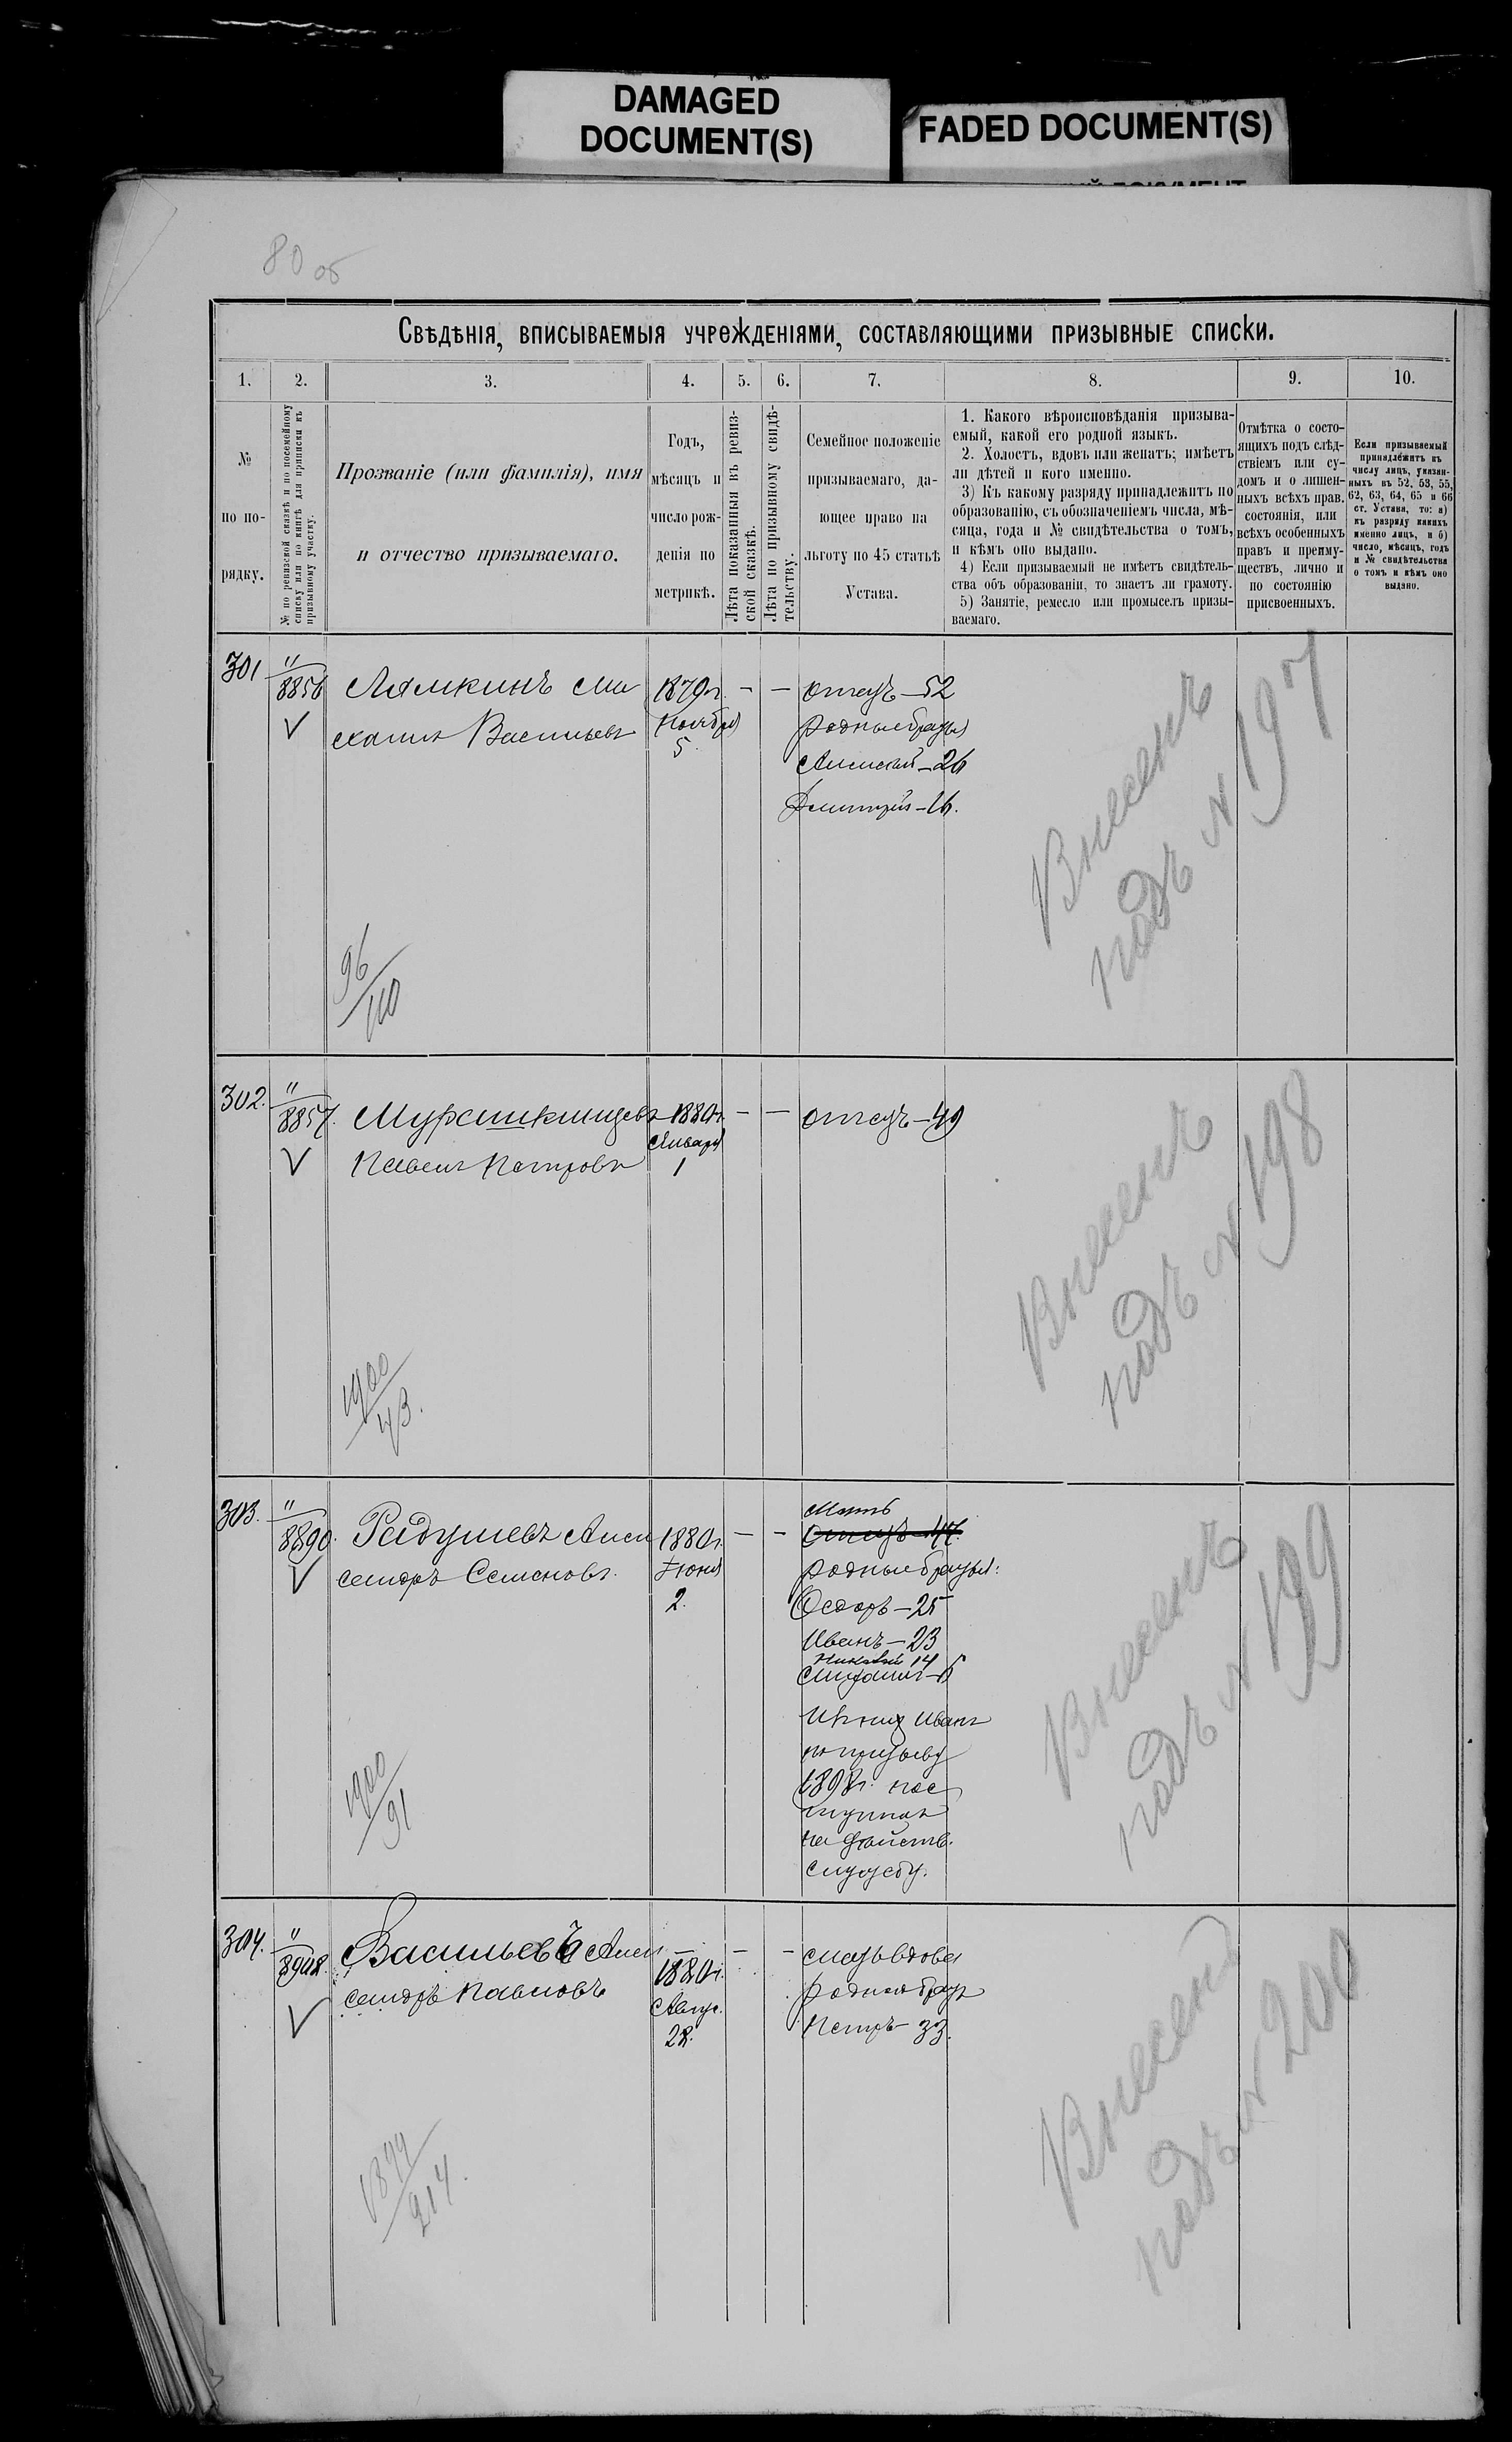 DAMAGED
DOCUMENT(S)
FADED DOCUMENT(S)
80 об
Свѣдѣнія, вписываемыя учрежденіями, составляющими призывные списки.
1. 2. 3. 4. 5. 6. 7. 8. 9. 10.
№
по по-
рядку.
№ по ревизской сказкѣ и по посемейному
списку или по книгѣ для приписки къ
призывному участку.
Прозваніе (или фамилія), имя
и отчество призываемаго.
Годъ,
мѣсяцъ и
число рож-
денія по
метрикѣ.
Лѣта показанныя въ ревиз-
ской сказкѣ.
Лѣта по призывному свидѣ-
тельству.
Семейное положеніе
призываемаго, да-
ющее право на
льготу по 45 статьѣ
Устава.
1. Какого вѣроисповѣданія призыва-
емый, какой его родной языкъ.
2. Холостъ, вдовъ или женатъ; имѣетъ
ли дѣтей и кого именно.
3) Къ какому разряду принадлежитъ по
образованію, съ обозначеніемъ числа, мѣ-
сяца, года и № свидѣтельства о томъ,
и кѣмъ оно выдано.
4) Если призываемый не имѣетъ свидѣтель-
ства объ образованіи, то знаетъ ли грамоту.
5) Занятіе, ремесло или промыселъ призы-
ваемаго.
Отмѣтка о состо-
ящихъ подъ слѣд-
ствіемъ или су-
домъ и о лишен-
ныхъ всѣхъ прав.
состоянія, или
всѣхъ особенныхъ
правъ и преиму-
ществъ, лично и
по состоянію
присвоенныхъ.
Если призываемый
принадлежитъ къ
числу лицъ, указан-
ныхъ въ 52, 53, 55,
62, 63, 64, 65 и 66
ст. Устава, то: а)
къ разряду какихъ
именно лицъ, и б)
число, мѣсяцъ, годъ
и № свидѣтельства
о томъ и кѣмъ оно
выдано.
301
"
8856
Лямкинъ Ми
хаилъ Васильевъ
1879г.
Ноября
5
— —
отецъ — 52
родные братья
Алексѣй — 26
Дмитрій — 16.
Внесенъ
подъ № 197
96
110
302.
"
8857.
Павелъ Петровъ
1880г.
Января
1
— —
отецъ — 49
Внесенъ
подъ № 198
1900
43.
303.
"
8890.
Радушевъ Алек
сандръ Семеновъ.
1880г.
Іюня
2.
— —
Мать
Отецъ — 47.
родные братья:
Ѳедоръ — 25
Иванъ — 23
Николай 14
Иванъ
по призыву
1898г. пос
тупилъ
на дѣйств.
службу.
Внесенъ
подъ № 199
1900
91
304.
"
8908.
Васильевъ Алек
сандръ Павловъ
1880г.
Авгус.
28.
— —
мать вдова
родной братъ
Петръ — 33.
Внесенъ
подъ № 200
1899
214.